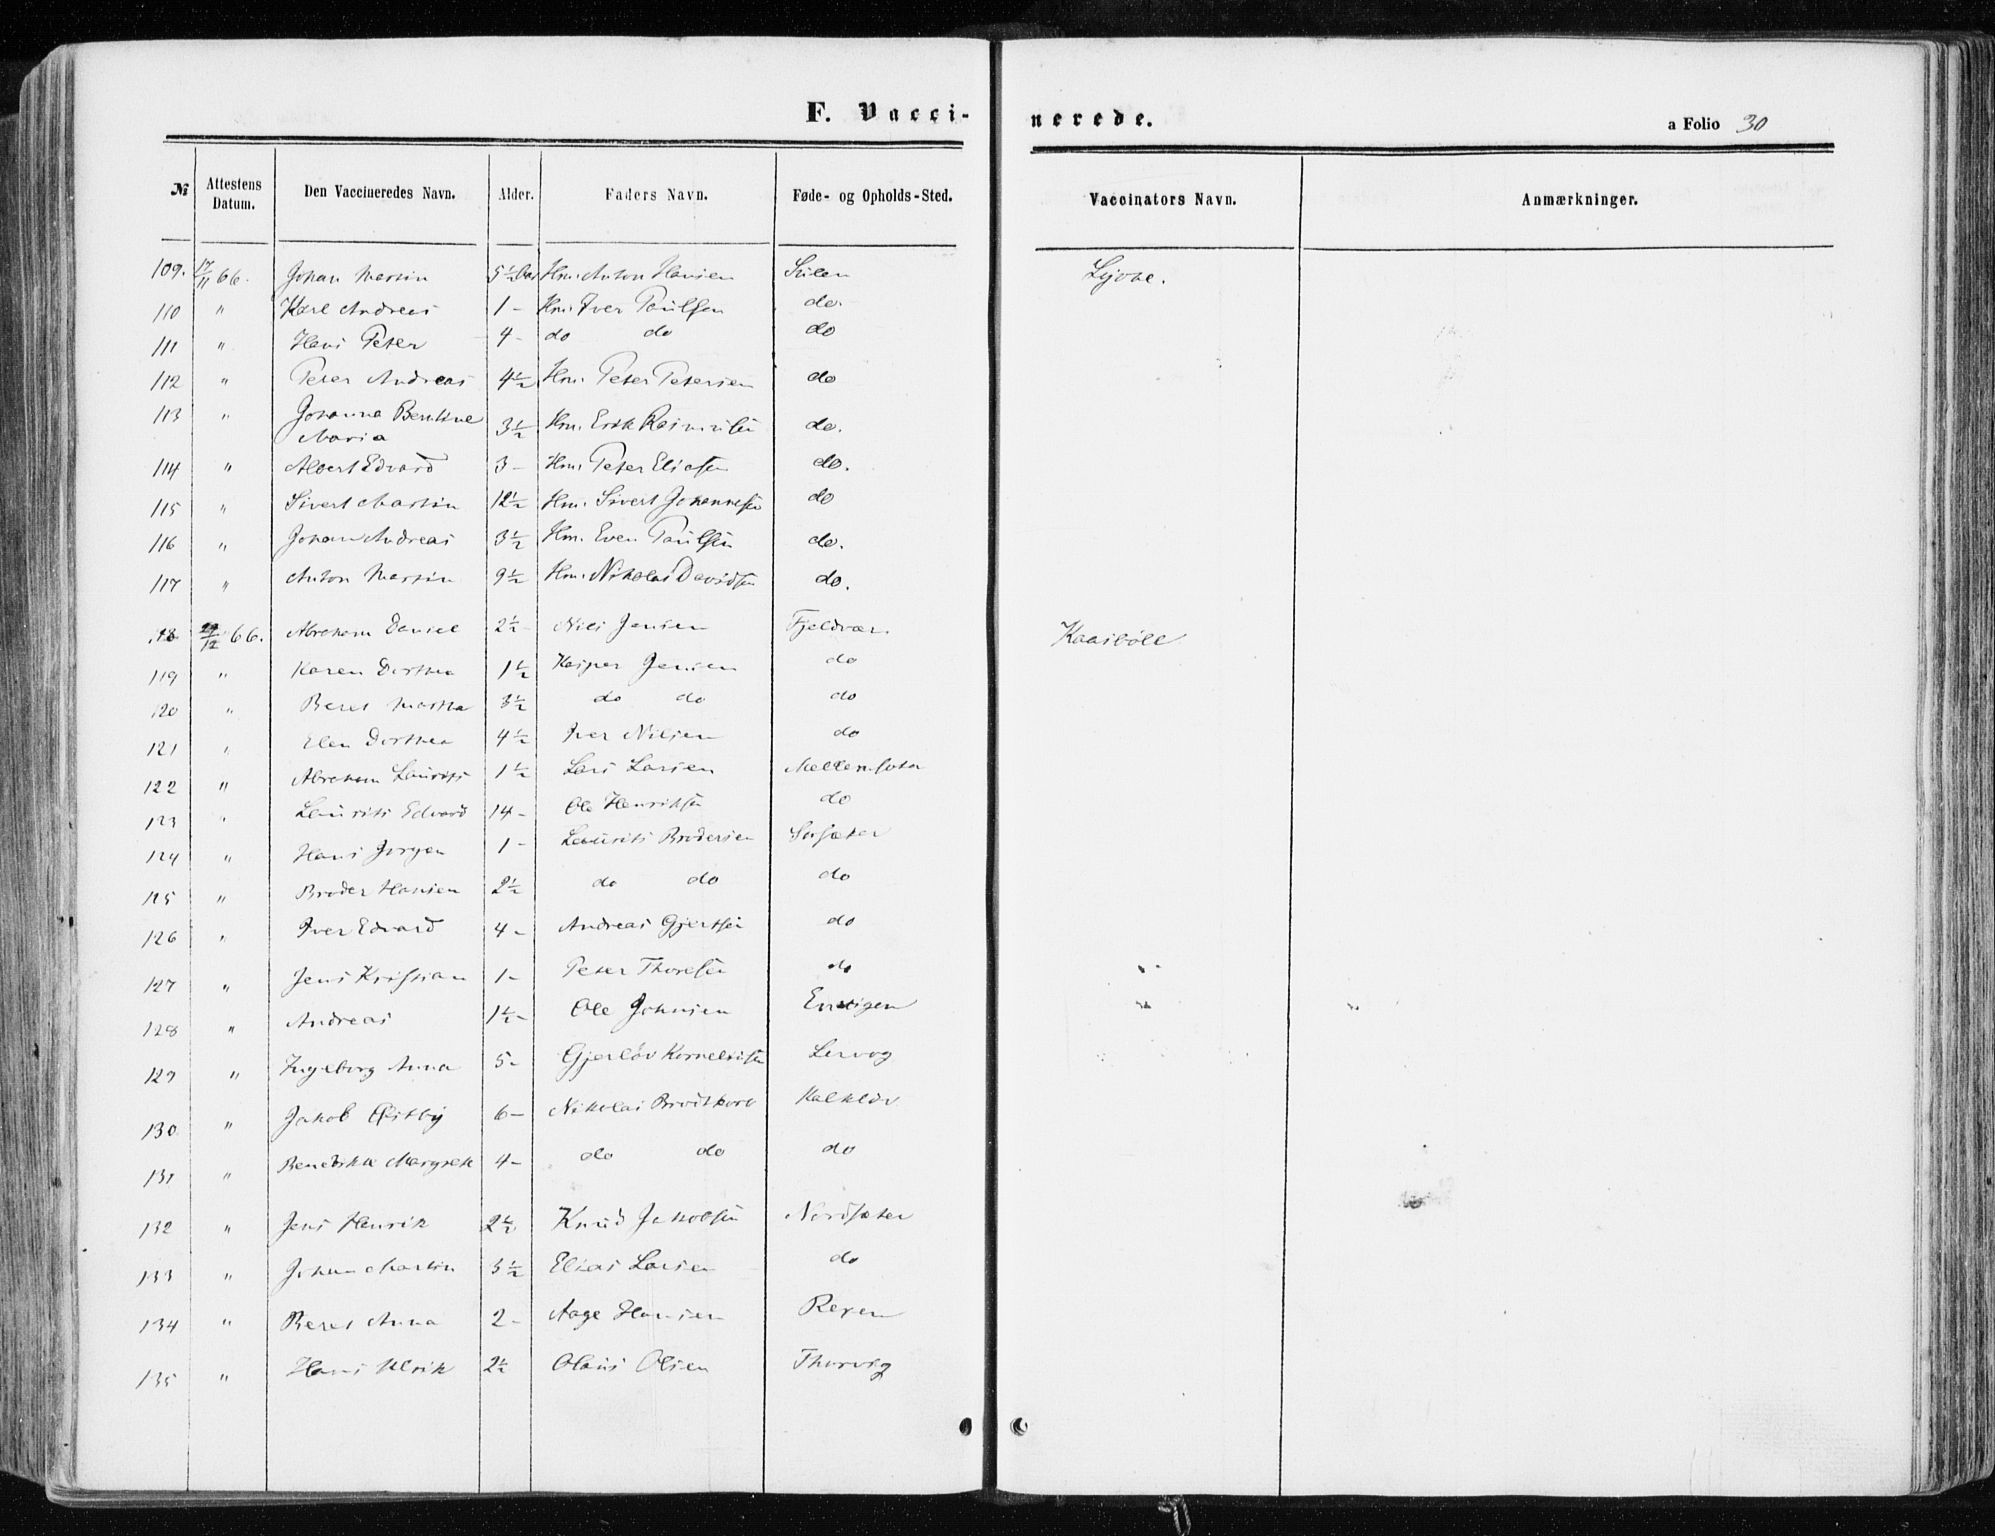 F. Vacci-
nerede.
a Folio 30
№ Attestens Datum. Den Vaccineredes Navn. Alder. Faders Navn. Føde- og Opholds-Sted. Vaccinators Navn. Anmærkninger.
109. 17/11 66. Johan Martin 5½ Hm. Anton Hansen Sulen
110 " Karl Andreas 1 - Hm. Iver Paulsen do.
111 " Hans Peter 4 - do do do
112 " Peter Andreas 4½ Hm. Peter Petersen do
113 " Johanna Bentine
Maria 3½ Hm. Erik Rasmusen do.
114 " Albert Edvard 3 - Hm. Peter Eliasen do.
115 " Sivert Martin 12½ Hm. Sivert Johannesen do
116 " Johan Andreas 3½ Hm. Even Paulsen do.
117 " Anton Martin 9½ Hm. Nikolai Davidsen do.
118 /12 66. Abraham Daniel 2½ - Nils Jensen Fjeldvær. Kaasbøll
119 " Karen Dorthea 1½ Kasper Jensen do
120 " Beret Martha 3½ do do do
121 " Elen Dorthea 4½ Iver Nilsen do
122 " Abraham Laurits 1½ Lars Larsen
123 " Laurits Edvard 14 - Ole Henriksen do
124 " Hans Jørgen 1 - Laurits Brodersen Sørsæter
125 " Broder Hansen 2½ do do do
126 " Iver Edvard 4 - Andreas Gjertsen do
127 " Jens Kristian 1 - Peter Thoresen do
128 " Andreas 1½ - Ole Johnsen
129 " Ingeborg Anna 5 - Gjerløv Kornelisen Lervog
130 " Jakob Østby 6 - Nikolai Brodtkorb Kalkløv
131 " Benedikte Margrete 4 - do do do
132 " Jens Henrik 2½ Knud Jakobsen Nordsæter
133 " Johan Martin 3½ Elias Larsen do
134 " Beret Anna 2 - Aage Hansen Rexen
135 " Hans Ulrik 2½ Olaus Olsen Thorvig